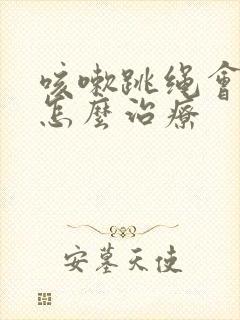 咳嗽跳绳會
怎麽治療
安墓天使